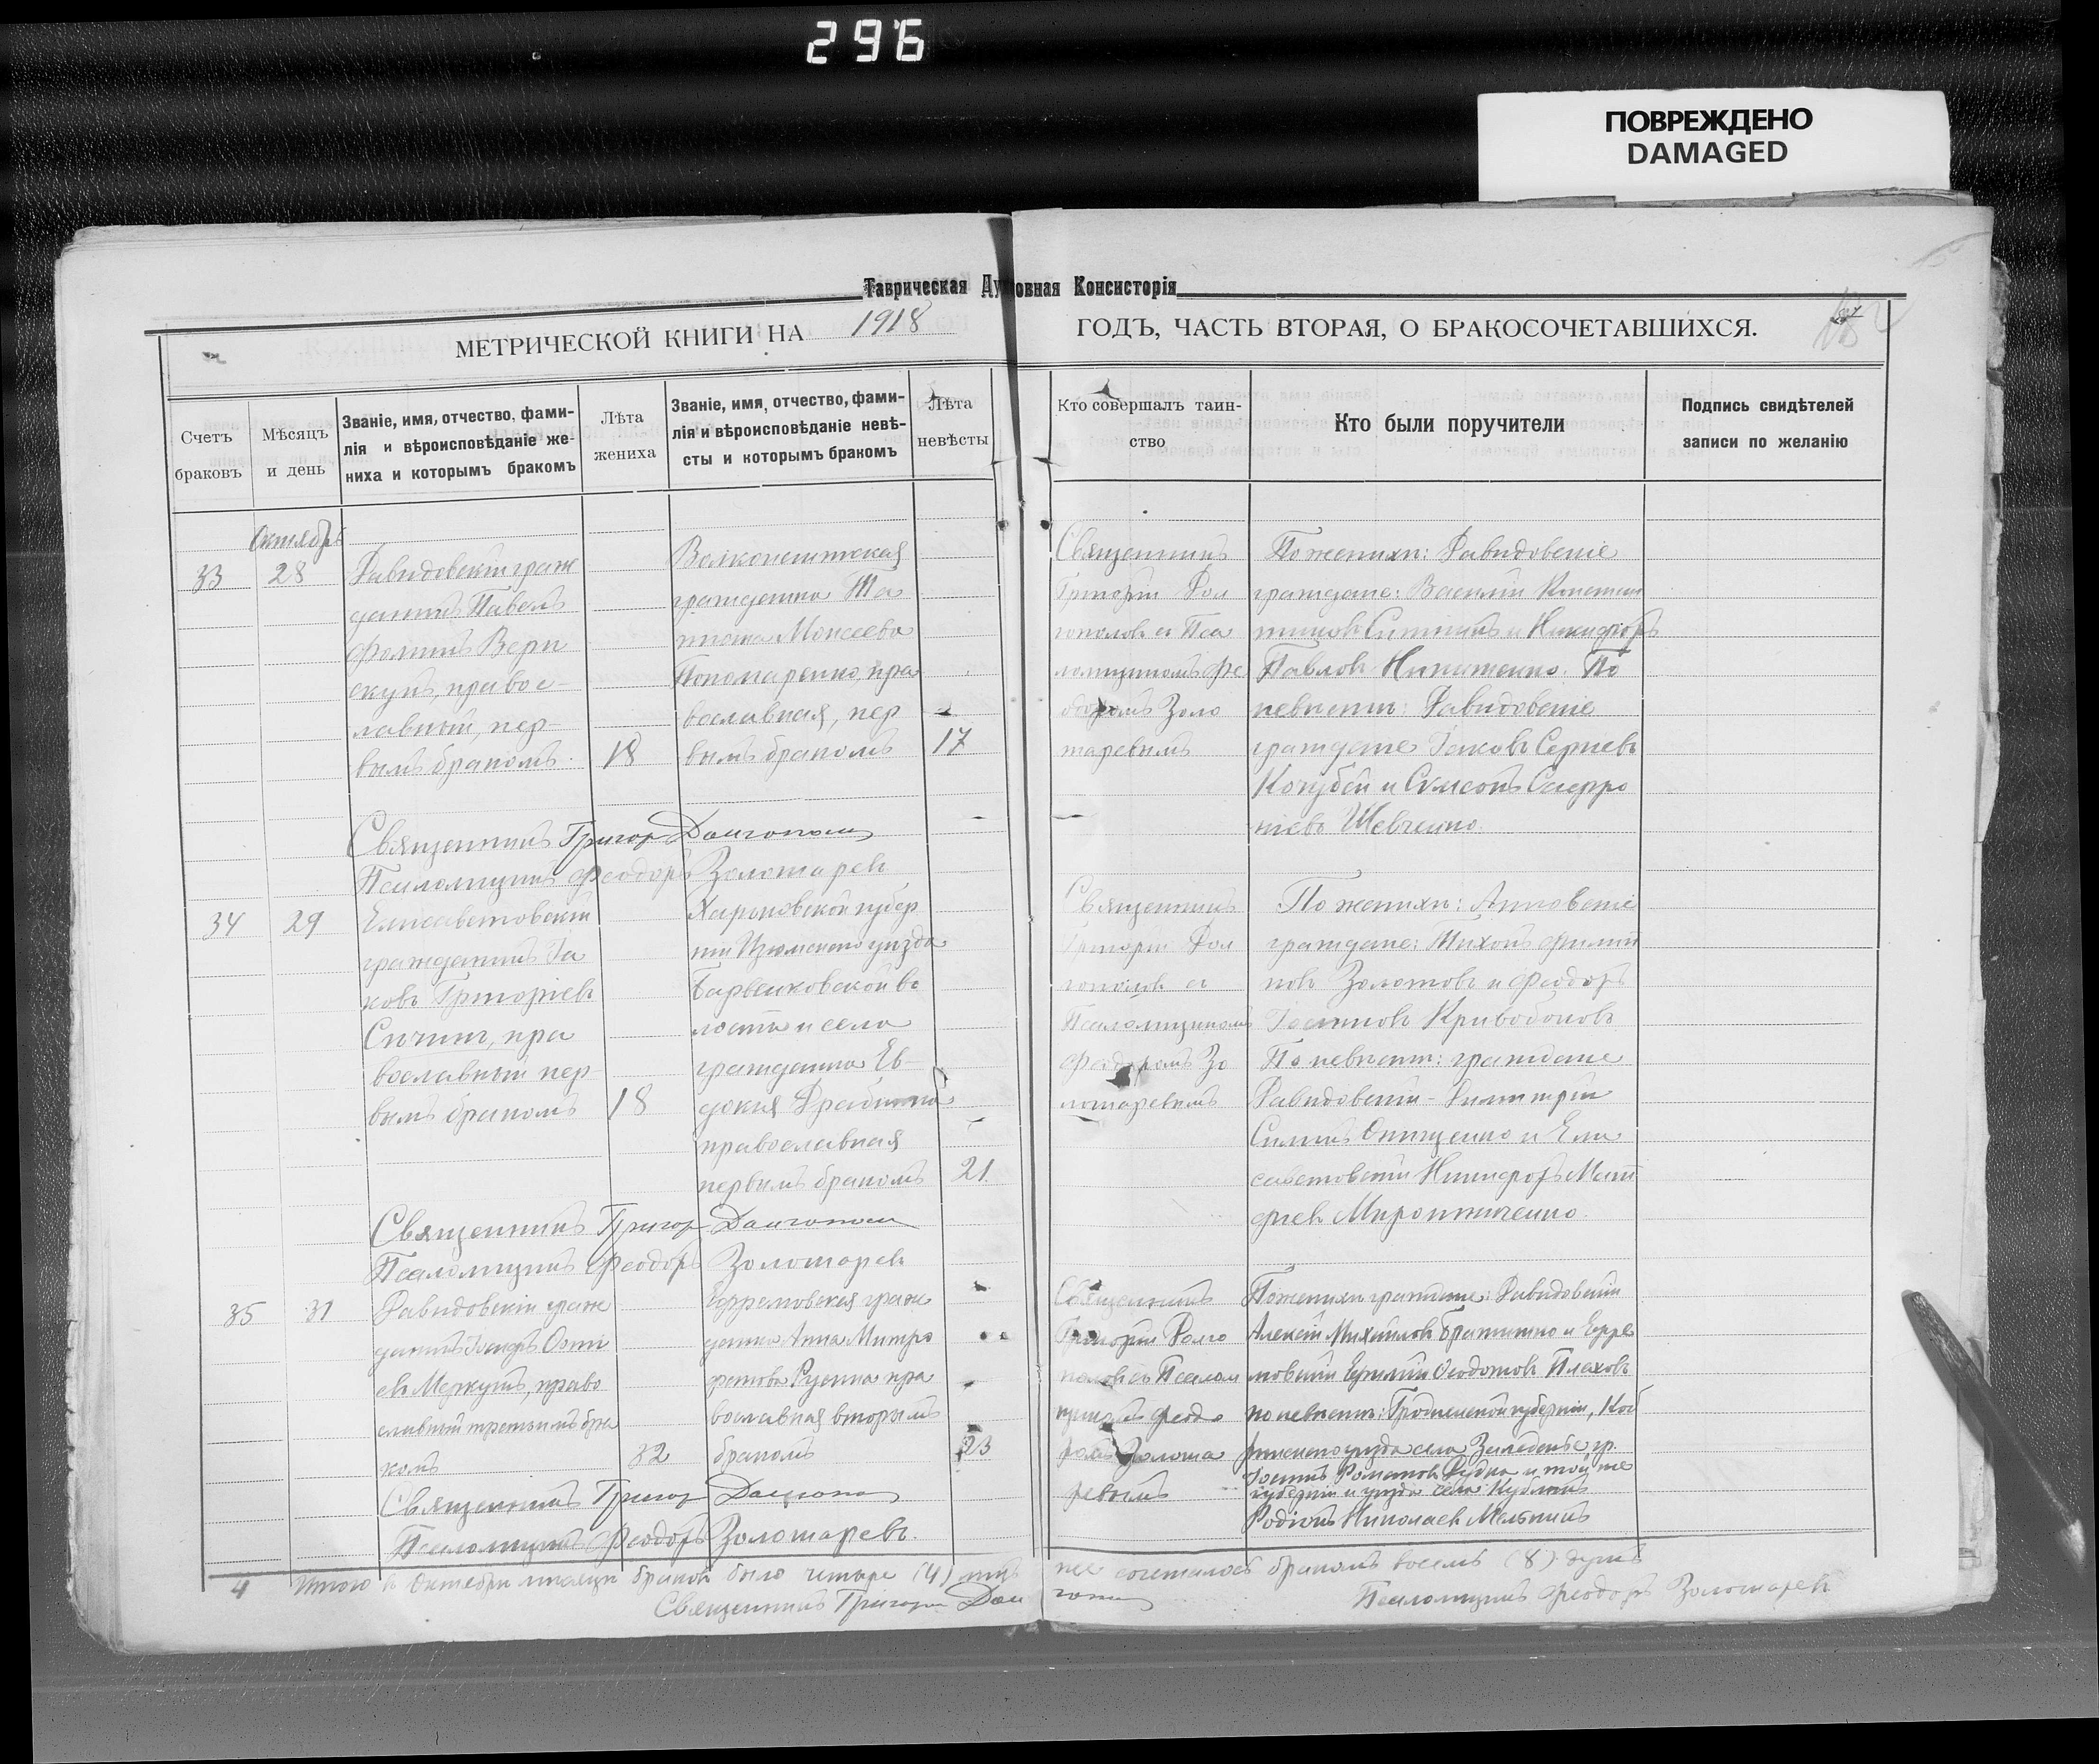 296
ПОВРЕЖДЕНО
DAMAGED
Таврическая Духовная Консисторія
МЕТРИЧЕСКОЙ КНИГИ НА 1918 ГОДЪ, ЧАСТЬ ВТОРАЯ, О БРАКОСОЧЕТАВШИХСЯ.
Счетъ
браковъ
Мѣсяцъ
и день
Званіе, имя, отчество, фами-
лія и вѣроисповѣданіе же-
ниха и которымъ бракомъ
Лѣта
жениха
Званіе, имя, отчество, фами-
лія и вѣроисповѣданіе невѣ-
сты и которымъ бракомъ
Лѣта
невѣсты
Кто совершалъ таин-
ство
Кто были поручители
Подпись свидѣтелей
записи по желанію
33
Октябрь
28
Давидовскій граж
данинъ Павелъ
Фоминъ Вери
скунъ, правос-
лавный, пер-
вымъ бракомъ
18
гражданка Та
тіана Моисеева
Пономаренко, пра
вославная, пер
вымъ бракомъ
17
Священникъ
Григорій Дол
гополовъ съ Пса
ломщикомъ Фе
одоромъ Золо
таревымъ
По женихѣ: Давидовскіе
граждане: Василій Констан
тиновъ и Никифоръ
Павловъ Никитенко. По
невѣстѣ: Давидовскіе
граждане Іаковъ Сергіевъ
Кочубей и Сѵмеонъ Софро
ніевъ Шевченко.
Священникъ Григор Долгополов
Псаломщикъ Феодоръ Золотаревъ
34
29
Елисаветовскій
гражданинъ Іа
ковъ Григоріевъ
пра
вославный пер
вымъ бракомъ
18
Харьковской губер
ніи Изюмскаго уѣзда
Барвенковской во
лости и села
гражданка Ев
докія
православная
первымъ бракомъ
21
Священникъ
Григорій Дол
гополовъ съ
Псаломщикомъ
Феодоромъ Зо
лотаревымъ
По женихѣ: Анновскіе
граждане: Тихонъ Филип
повъ Золотовъ и Феодоръ
Іосифовъ Кривобоковъ
По невѣстѣ: граждане
Давидовскій - Димитрій
Силинъ Онищенко и Ели
саветовскій Никифоръ Мат
фіевъ Мирошниченко.
Священникъ Григор Долгополов
Псаломщикъ Феодоръ Золотаревъ
35
31
Давидовскій граж
данинъ
евъ Меркунъ, право
славный третьимъ бра
комъ
32
Ефремовская граж
данка Анна Митро
фанова Руенко пра
вославная вторымъ
бракомъ
23
Священникъ
Григорій Долго
половъ съ Псалом
щикомъ Феодо
ромъ Золота
ревымъ
По женихѣ граждане: Давидовскій
Алексій Михайловъ и Ефре
мовскій Ефимій Ѳедотовъ Плаховъ
по невѣстѣ: Гродненской губерніи, Коб
ринскаго уѣзда села гр.
Романовъ и той же
губерніи и уѣзда села
Родіонъ Николаевъ Мельникъ
Священникъ Григор Долгопол
Псаломщикъ Феодоръ Золотаревъ.
4 Итого въ Октябрѣ мѣсяцѣ браковъ было четыре (4) въ нихъ
же сочеталось бракомъ восемь (8) душъ
Священникъ Григорій Долгопол
Псаломщикъ Феодоръ Золотаревъ